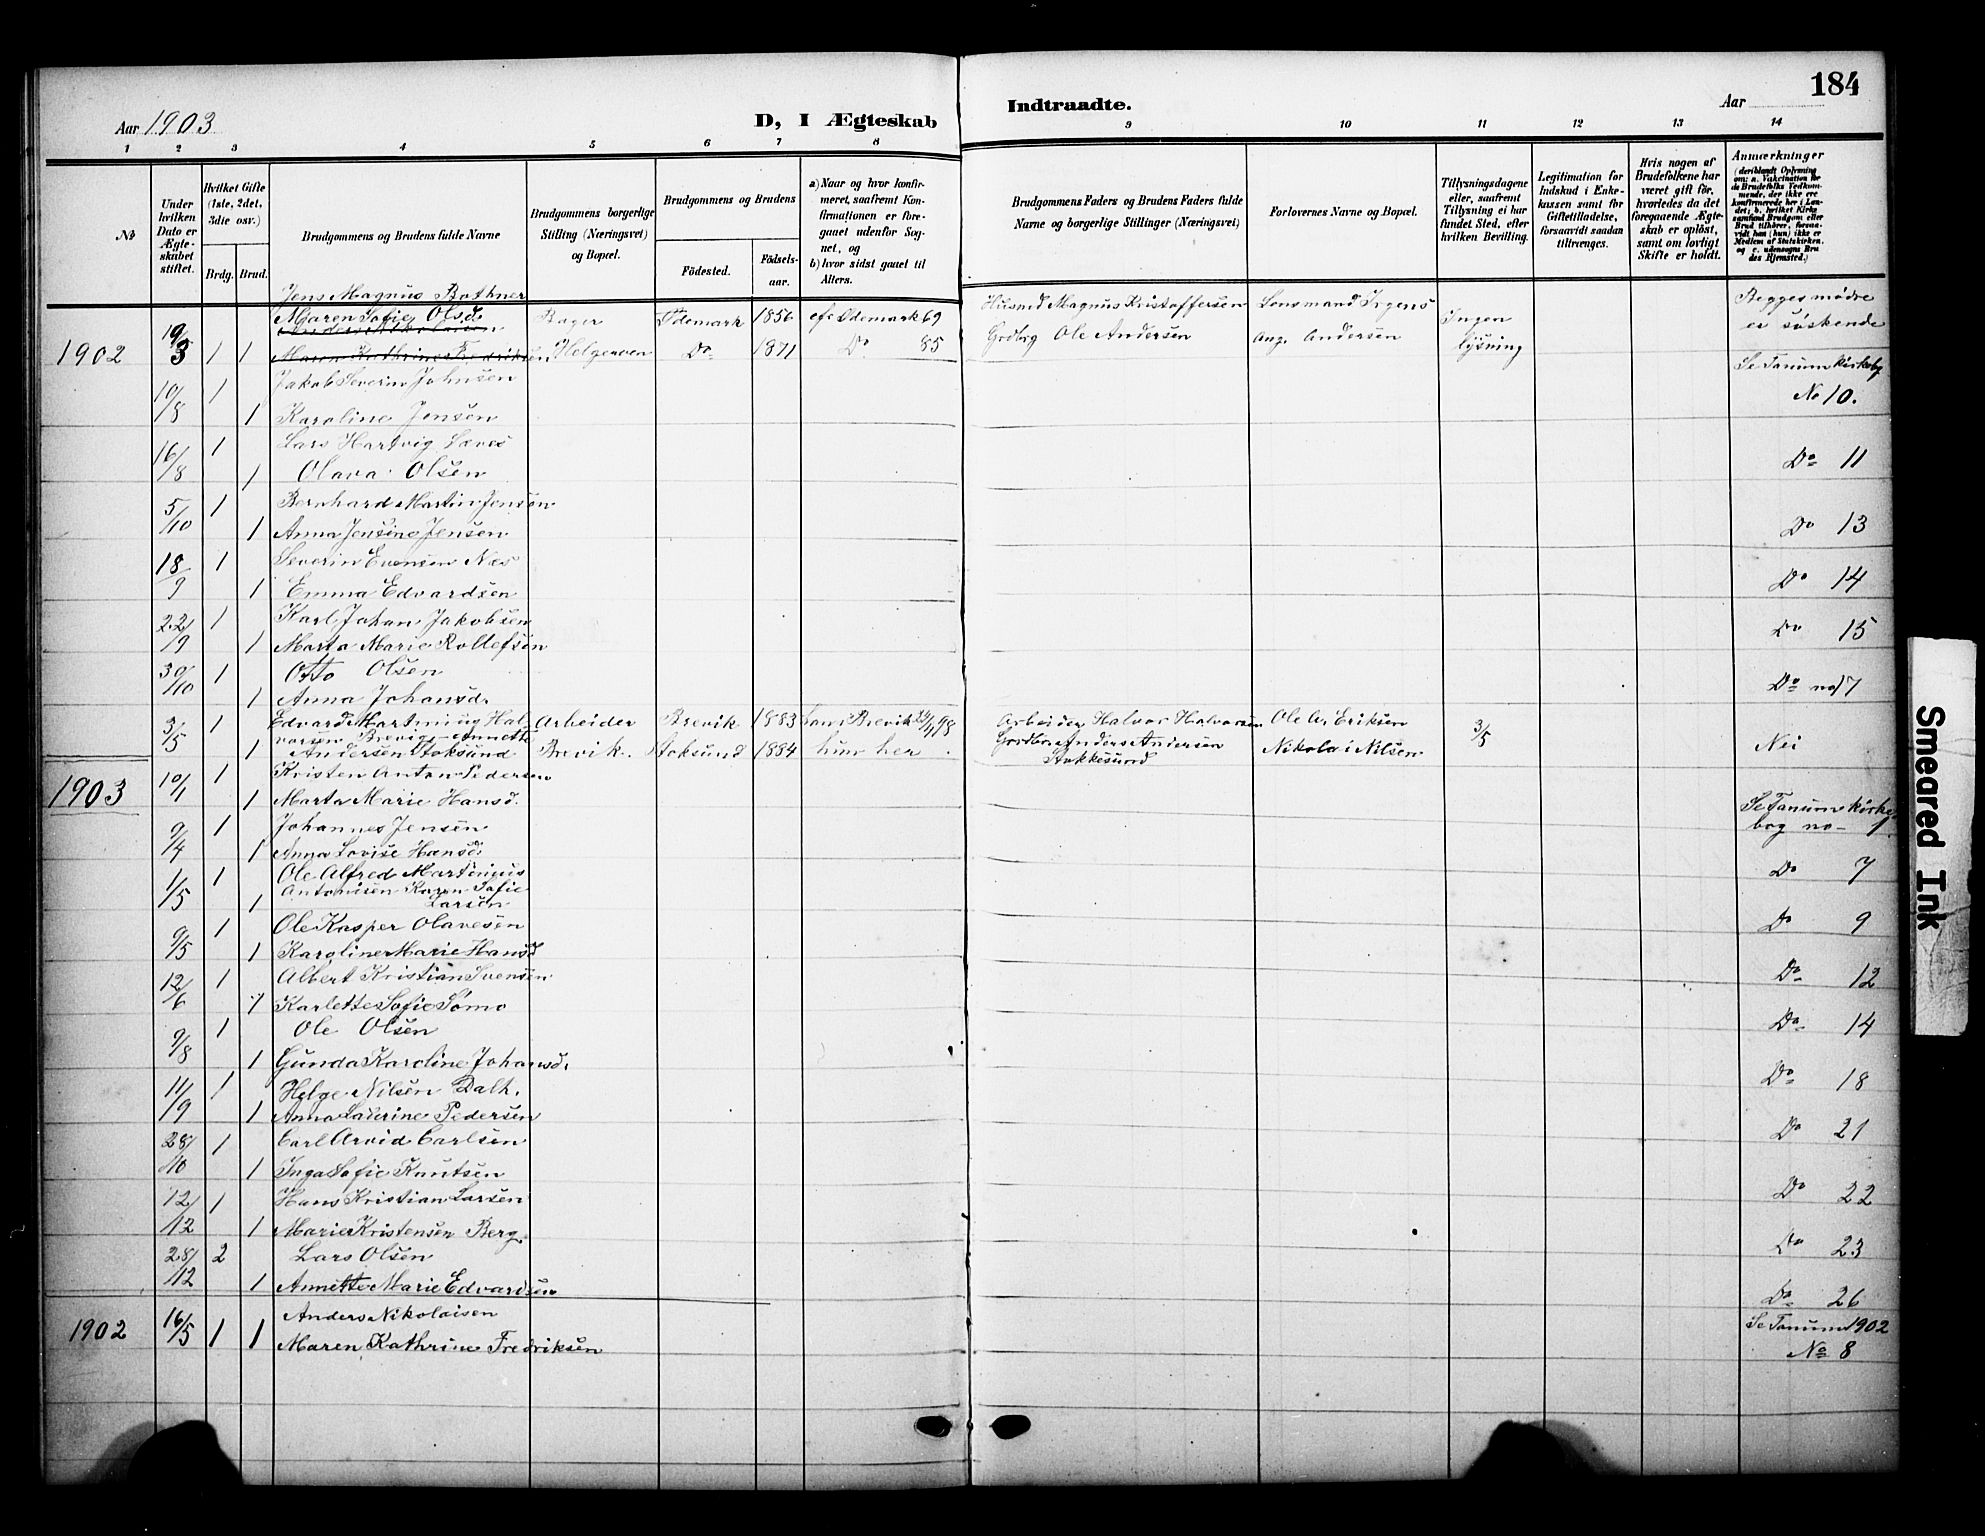 184
Aar 1903
D, I Ægteskab
Indtraadte.
Aar
1 2 3 4 5 6 7 8 9 10 11 12 13 14
No
Under hvilken Dato er Ægteskabet stiftet.
Hvilket Gifte (1ste, 2det, 3die osv.)
Brdg. Brud.
Brudgommens og Brudens fulde Navne
Brudgommens borgerlige Stilling (Næringsvei) og Bopæl.
Brudgommens og Brudens
Födested.
Födselsaar.
a) Naar og hvor konfirmeret, saafremt Konfirmationen er foregaaet udenfor Sognet, og
b) hvor sidst gaaet til Alters.
Brudgommens Faders og Brudens Faders fulde Navne og borgerlige Stillinger (Næringsvei)
Forlovernes Navne og Bopæl.
Tillysningsdagene eller, saafremt Tillysning ei har fundet Sted, efter hvilken Bevilling.
Legitimation for Indskud i Enkekassen samt for Giftetilladelse, forsaavidt saadan tiltrænges.
Hvis nogen af Brudefolkene har været gift för, hvorledes da det foregaaende Ægteskab er oplöst, samt om lovligt Skifte er holdt.
Anmærkninger
(deriblandt Oplysning om: a. Vakcination for de Brudefolks Vedkommende, der ikke ere konfirmerede her i Landet; b. hvilket Kirkesamfund Brudgom eller Brud tilhörer, forsaavidt han (hun) ikke er Medlem af Statskirken, og c. udensogns Brudes Hjemsted.)
Jens Magnus Bathner
Maren Sofie Olsd. Bager Ødemark 1856 efe Ødemark 69 Husmd Magnus Kristoffersen Lensmand Irgens Begges mødre
1902 19/3 1 1 Maren Kathrine Fredriksen Helgeroen Do 1871 Do 85 Grdbrg Ole Andersen Aug. Andersen Ingen lysning er søskende
10/8 1 Jakob Severin Johnsen Se Tanum kirkebg
1 Karoline Jensen No 10.
16/8 1 Lars Hartvig Laves
1 Olava Olsen Do 11
5/10 1 Bernhard Martin Jensen
1 Anna Jensine Jensen Do 13
18/9 1 Severin Evensen Næs
1 Emma Edvardsen Do 14
22/9 1 Karl Johan Jakobsen
1 Marta Marie Rollefsen Do 15
30/10 1 Otto Olsen
1 Anna Johansd. Do no 17
3/5 1 Edvard Martinius Hal- Arbeider Brevik 1883 Brevik 98 Arbeider Halvor Halvorsen Ole A. Eriksen 3/5
vorsen Brevig - Annette
1 Andersen Stoksund Brevik. Stoksund 1884 hun her Gardbr. Anders Andersen Nikolai Nilsen Nei
Stokkesund
1903 10/1 1 Kristen Anton Pedersen
1 Marta Marie Hansd. Se Tanum kirke-
9/4 1 Johannes Jensen bog no 1
1 Anna Lovise Hansd.
1/5 1 Ole Alfred Martinius Do 7
Antonisen Karen Sofie
1 Larsen
9/5 1 Ole Kasper Olavesen Do 9
1 Karoline Marie Hansd
12/6 1 Albert Kristian Svensen Do 12
1 Karlette Sofie Sømo
9/8 1 Ole Olsen Do 14
1 Gunda Karoline Johansd.
11/9 1 Helge Nilsen Dalh. Do 18
1 Anna Laurine Pedersen
28/10 1 Carl Arvid Carlsen Do 21
1 Inga Sofie Knutsen
12/12 1 Hans Kristian Larsen Do 22
1 Marie Kristensen Berg
28/12 2 Lars Olsen Do 23
1 Annette Marie Edvardsen
Do 26
1902 16/5 1 1 Anders Nikolaisen Se Tanum 1902
Maren Kathrine Fredriksen No 8
Smeared Ink